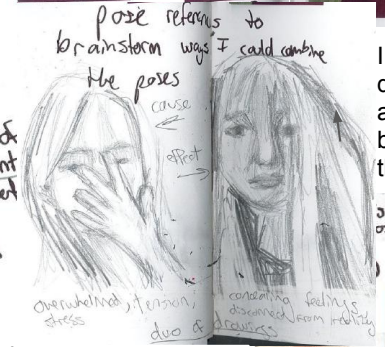 pose references to
brainstorm ways I could combine
the poses
cause
effect
overwhelmed, tension,
stress
concealing feelings
disconnect from reality
duo of drawings